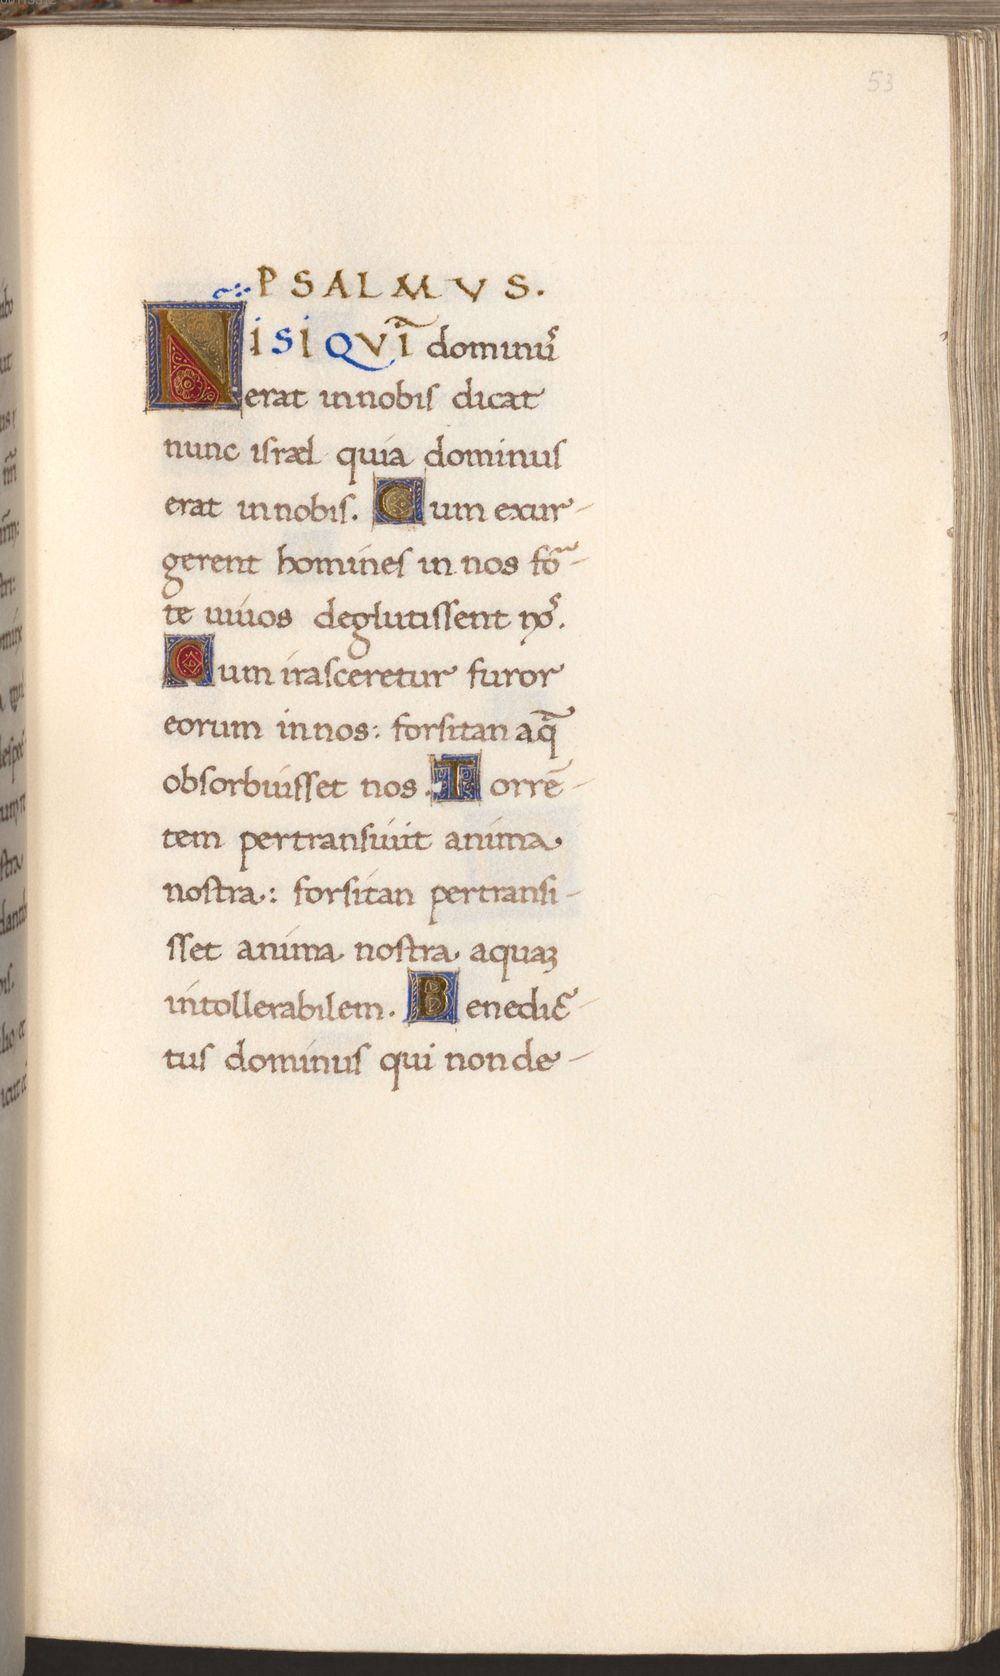 53
PSALMVS.
NISI QVIᵃ dominuˢ
erat in nobis dicat
nunc israel quia dominus
erat in nobis. Cum exur-
gerent homines in nos for-
te uiuos deglutissent noˢ.
Cum irasceretur furor
eorum in nos: forsitan aq̃
obsorbuisset nos. Torrē-
tem pertransiuit anima
nostra: forsitan pertransi-
sset anima nostra aquaꝫ
intollerabilem. Benedic-
tus dominus qui non de-